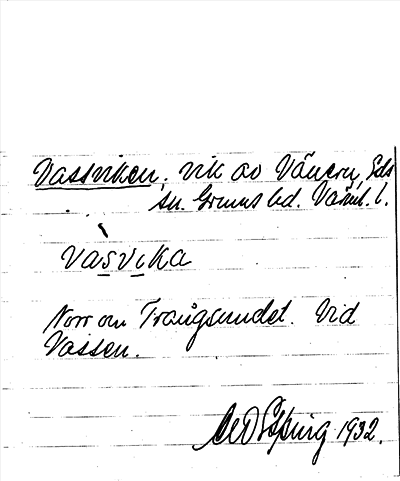 Vassviken, vik av Vänern, Eds
sn. Grums hd. Värml. l.
vàsvika
Norr om Trångsundet. Vid
Vassen.
1932.